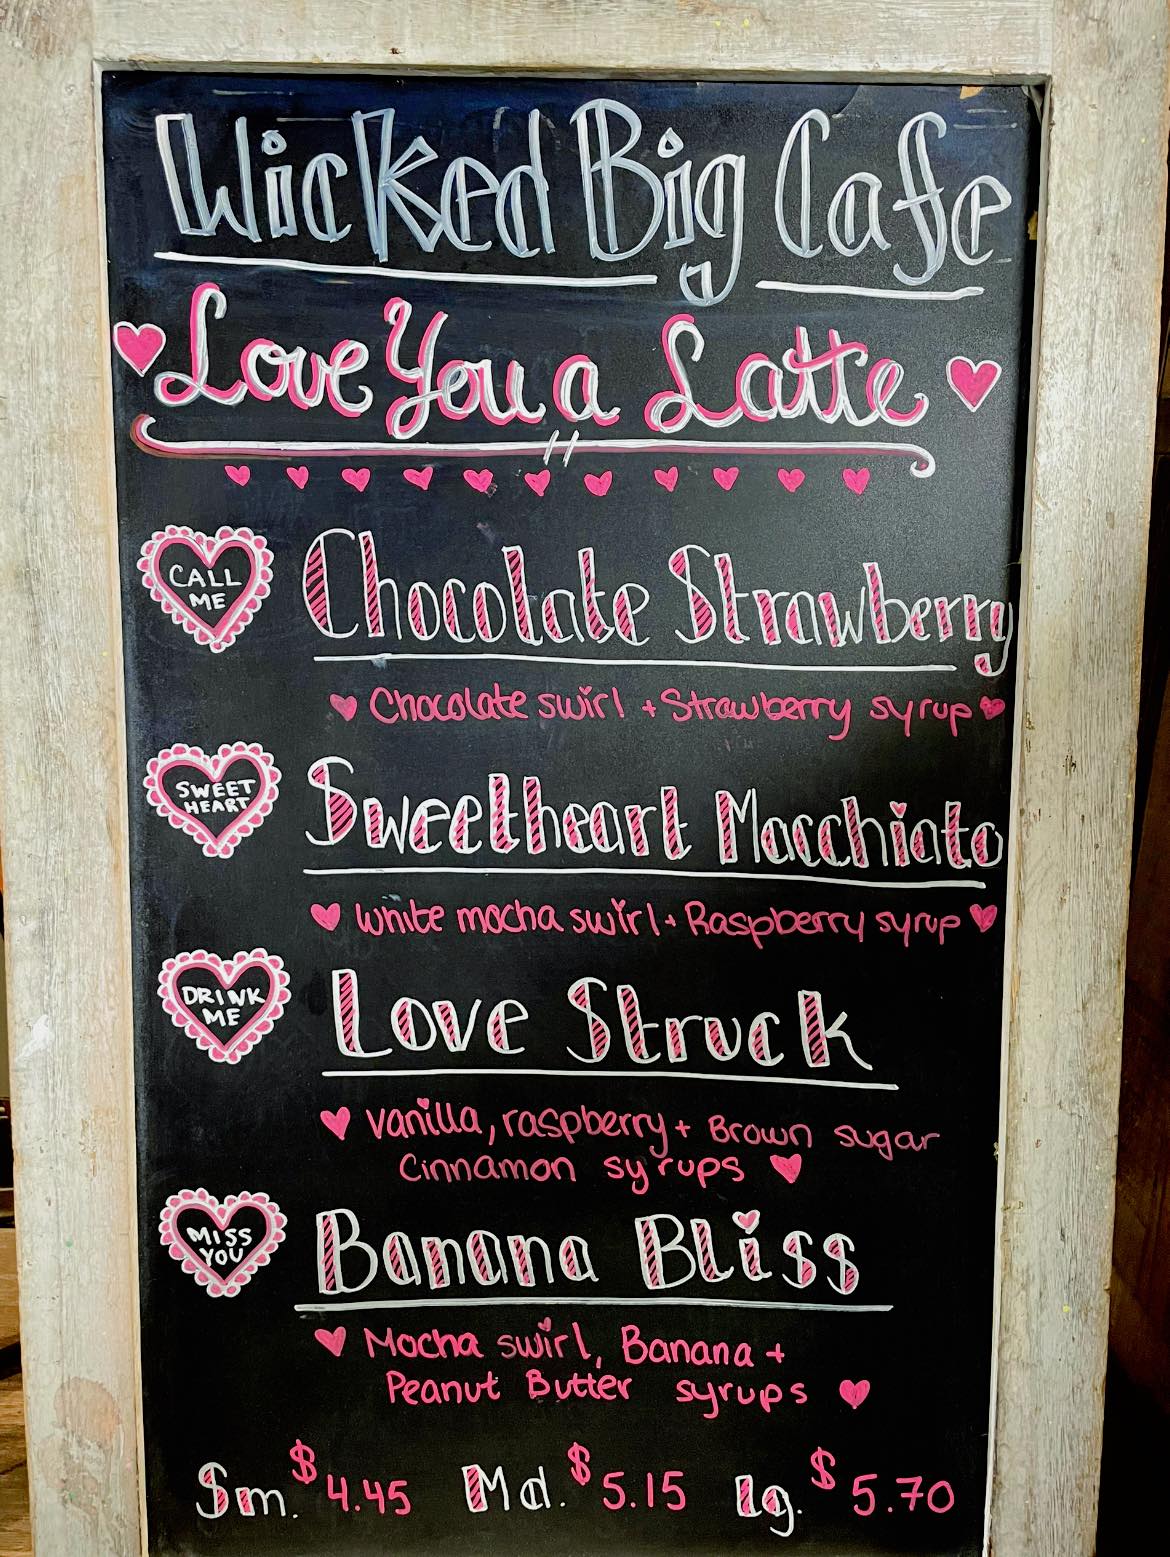 Wicked Big Cafe
Love You a Latte
CALL
ME
Chocolate Strawberry
Chocolate swirl + Strawberry syrup
SWEET
HEART
Sweetheart Macchiato
White mocha swirl + Raspberry syrup
DRINK
ME
Love Struck
vanilla, raspberry + Brown sugar
Cinnamon syrups
MISS
YOU
Banana Bliss
Mocha swirl, Banana +
Peanut Butter syrups
Sm. $4.45 Md. $5.15 Lg. $5.70